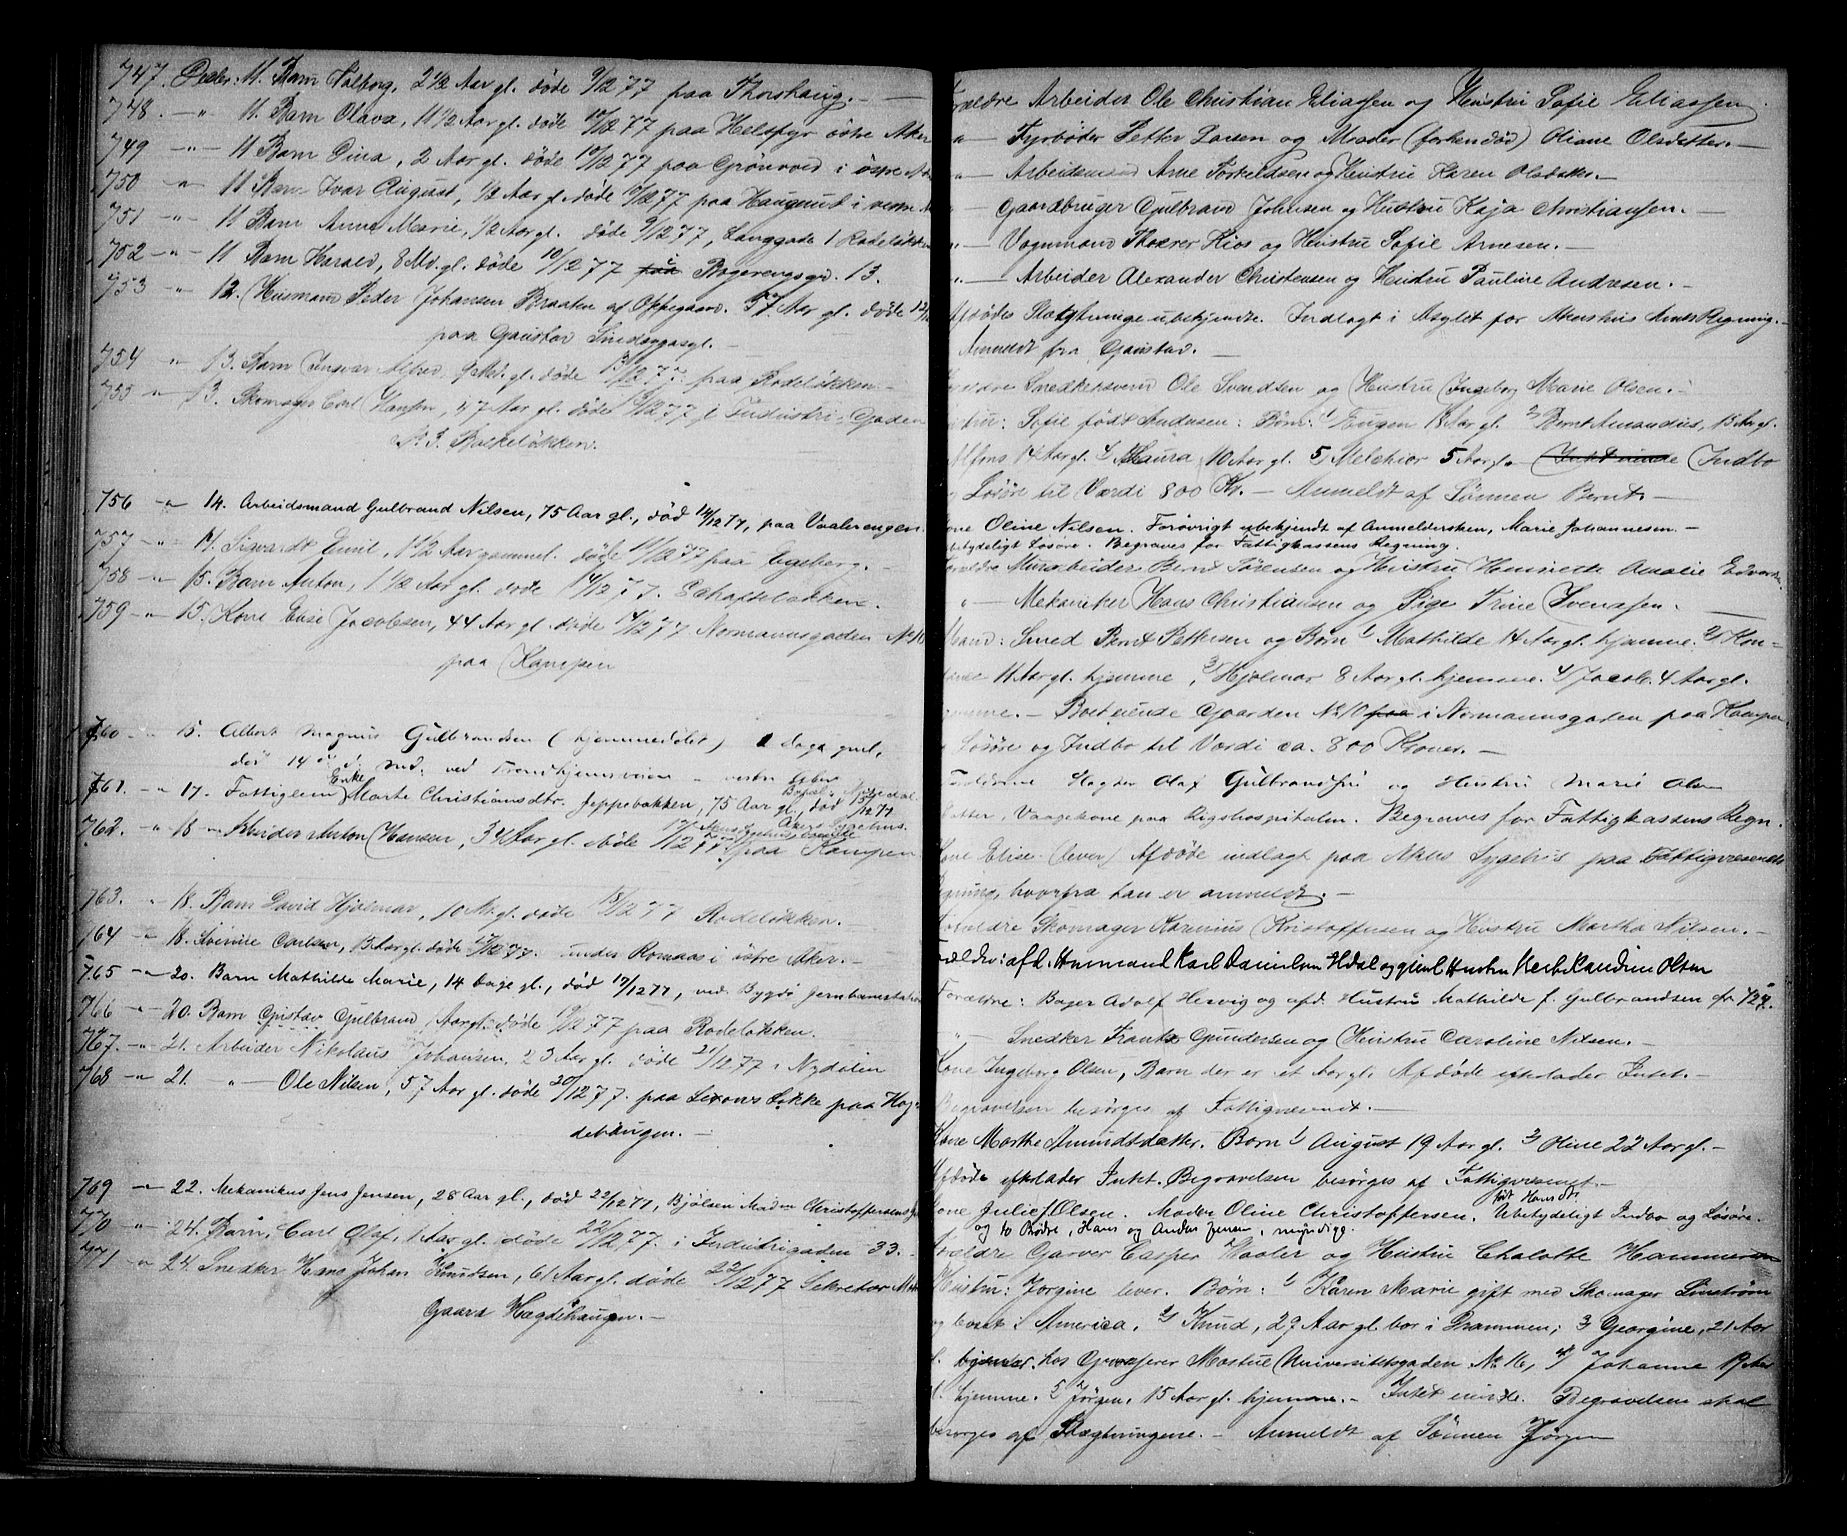 747. Decbr. 11. Barn Valborg, 2 1/2 Aar gl. døde 9/12 77 paa Thorshaug. —
748. — " 11. Barn Olava, 11 1/2 Aar gl. døde 10/12 77 paa Helsfyr østre Aker
749 — " — 11 Barn Dina, 2 Aar gl. døde 10/12 77 paa Grønvold i østre Aker
750 — " 11 Barn Ivar August, 1/2 Aar gl. døde /12 77 paa i vestre
751 — " — 11 Barn Anna Marie, 1/2 Aar gl. døde 9/12 77, Langgade 1 Rodeløkken
752 — " — 11 Barn Harald, 8 Md. gl. døde 10/12 77 i Bogerengsgd. 13.
753 — " 12. Husmand Peder Johansen Braaten af Oppegaard. 57 Aar gl. døde 12/12
paa Gaustad Sindsygeasyl. —
754 — " — 13. Barn Alfred, 9 Md. gl. døde 13/12 77 paa Rodeløkken —
755 — " — 13. Skomager Carl Hansen, 47 Aar gl. døde /12 77 i Industri-Gaden
No 3. Balkeløkken.
756 — " — 14. Arbeidsmand Gulbrand Nilsen, 75 Aar gl., død 14/12 77, paa Vaalerengen.
757 — " — 14. Sigvardt Emil, 1 1/2 Aar gammel døde 11/12 77 paa Egeberg. —
758 — " — 15. Barn Anton, 1 1/2 Aar gl. døde 14/12 77. Schafteløkken.
759 — " — 15. Kone Elise Jacobsen, 44 Aar gl. døde 14/12 77 Normannsgaden No 10
paa Kampen
760 — " 15. Albert Magnus Gulbrandsen (hjemmedøbt) 2 dage gml,
død 14 d. d. Md. ved Trondhjemsveien — vestre Aker
761. — " 17. Fattiglem Enke Marte Christiansdtr. Jeppebakken, 75 Aar gl., død 15/12 77
Akers Sygehus.
762. " 18 — Arbeider Anton Hansen, 34 Aar gl. døde 17/12 77 paa Kampen
763. " 18. Barn David Hjalmar, 10 Aar gl. døde 15/12 77 Rodeløkken.
764 — " 18. Carlsen, 13 Aar gl. døde /12 77. under Romsaas i østre Aker. —
765 — " 20. Barn Mathilde Marie, 14 Dage gl., død 17/12 77, ved Bygdø Jernbanestation
766 — " 20. Barn Gustav Gulbrand, 1 Aar gl. døde 19/12 77 paa Rodeløkken.
767. — " 21. Arbeider Nikolaus Johansen, 23 Aar gl. døde 21/12 77 i Nydalen
768 — " 21. " — Ole Nilsen, 57 Aar gl. døde 20/12 77. paa Løkke paa Hæg-
dehaugen. —
769 — " 22. Mekanikus Jens Jensen, 28 Aar gl., død 22/12 77, Bjølsen
770 " 24. Barn, Carl Olaf, 1 Aar gl. døde 22/12 77. i Industrigaden 33. —
771 — " 24. Snedker Hans Johan Knudsen, 61 Aar gl. døde 22/12 77 Sekretær
Gaard Hægdehaugen. —
Forældre Arbeider Ole Christian Eliassen og Hustru Sofie Eliassen.
" — Fyrbøder Petter Larsen og Moder (forhendød) Oliane Olsdatter. —
" — Arbeidsmand Arne Torkeldsen og Hustru Karen Olsdatter. —
— Gaardbruger Gulbrand Johnsen og Hustru Kaja Christiansen. —
" — Vognmand Thorer Rios og Hustru Sofie Arnesen. —
" — Arbeider Alexander Christensen og Hustru Pauline Andresen. —
Afdødes Slægtninge ubekjendte. Indlagt i Asylet for Akershus Amts Regning. —
Anmeldt fra Gaustad. —
Forældre Snedkersvend Ole Svendsen og Hustru Ingeborg Marie Olsen. —
Hustru: Sofie født Andersen: Børn: 1/ Eugen 18 Aar gl. 2/ Bernt Amandus, 15 Aar gl.
Alfons 14 Aar gl. 4/ Laura 10 Aar gl. 5/ Melchior 5 Aar gl. Indbo
og Løsøre til Værdi 800 Kr. — Anmeldt af Sønnen Bernt —
Kone Oline Nilsen. Forøvrigt ubekjendt af Anmeldersken, Marie Johannesen. —
Ubetydeligt Løsøre. Begraves for Fattigkassens Regning.
Forældre Murarbeider Bernt Sørensen og Hustru Henriette Amalie Edvardsen
" — Mekaniker Hans Christiansen og Pige Trine Svensen. —
Mand: Smed Bernt Pettersen og Børn 1/ Mathilde 14 Aar gl. hjemme. 2/ Kon-
11 Aar gl. hjemme, 3/ Hjalmar 8 Aar gl. hjemme. 4/ Jacob 4 Aar gl.
hjemme. — Boet eiende Gaarden No 10 paa i Normannsgaden paa Kampen
Løsøre og Indbo til Værdi ca. 800 Kroner. —
Forældrene Olaf Gulbrandsen og Hustru Marie Ols-
datter, Vaagekone paa Rigshospitalen. Begraves for Fattigkassens Regn.
Kone Elise. (lever) Afdøde indlagt paa Akers Sygehus paa Fattigvæsenets
Regning, hvorfra han er anmeldt. —
Forældre Skomager Karenius Kristoffersen og Hustru Martha Nilsen. —
Forældre: afd. Husmand Karl Danielsen og gjenl. Hustru Olsen
Forældre: Bager Adolf Hervig og afd. Hustru Mathilde f. Gulbrandsen cfr 724.
" — Snedker Frantz Gundersen og Hustru Caroline Nilsen. —
Kone Ingeborg Olsen, Barn der er et Aar gl. Afdøde efterlader Intet. —
Begravelsen besørges af Fattigvæsenet. —
Kone Marthe Amundtdatter. Børn 1/ August 19 Aar gl. 2/ Oline 22 Aar gl. —
Afdøde efterlader Intet. Begravelsen besørges af Fattigvæsenet. —
født Hansdt.
Kone Julie f. Olsen. Moder Oline Christoffersen. Ubetydeligt Indbo og Løsøre.
og to Brødre, Hans og Anders Jensen, myndige.
Forældre Garver Casper og Hustru Chalotte Hammersen
Hustru: Jørgine lever. Børn: 1/ Karen Marie gift med Skomager Linstrøm
og bosat i America. 2/ Knud, 29 Aar gl. bor i Drammen; 3/ Georgine, 21 Aar
gl. hjemme hos Mostue Universitetsgaden No 16, 4/ Johanne 19 Aar
gl. hjemme. 5/ Jørgen, 15 Aar gl. hjemme. — Intet eiende. Begravelsen skal
besørges af Slægtningene. — Anmeldt af Sønnen Jørgen